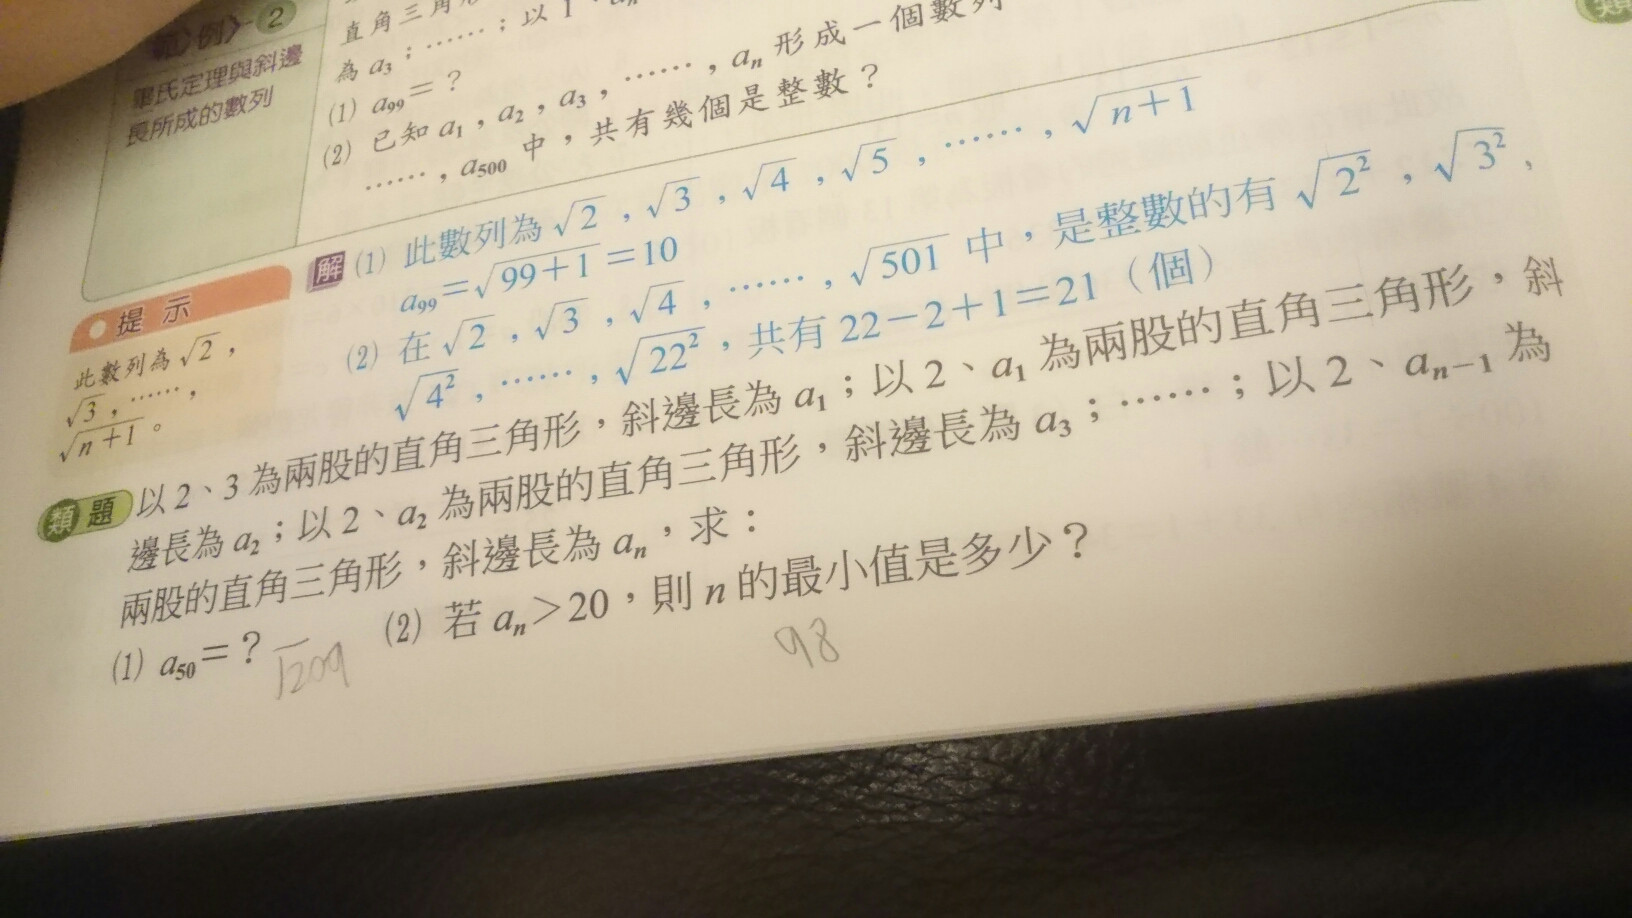 例 2
畢氏定理與斜邊
長所成的數列
直角三角形
；以1、an
為 a₃；……
(1) a₉₉＝？
(2) 已知 a₁，a₂，a₃，……，aₙ 形成一個數列
……，a₅₀₀ 中，共有幾個是整數？
解 (1) 此數列為 √2，√3，√4，√5，……，√(n+1)
a₉₉＝√(99+1)＝10
(2) 在 √2，√3，√4，……，√501 中，是整數的有 √2²，√3²，
√4²，……，√22²，共有 22－2＋1＝21（個）
提示
此數列為 √2，
√3，……，
√(n+1)。
類題 以 2、3 為兩股的直角三角形，斜邊長為 a₁；以 2、a₁ 為兩股的直角三角形，斜
邊長為 a₂；以 2、a₂ 為兩股的直角三角形，斜邊長為 a₃；……；以 2、aₙ₋₁ 為
兩股的直角三角形，斜邊長為 aₙ，求：
(1) a₅₀＝？ √209 (2) 若 aₙ＞20，則 n 的最小值是多少？
98
類